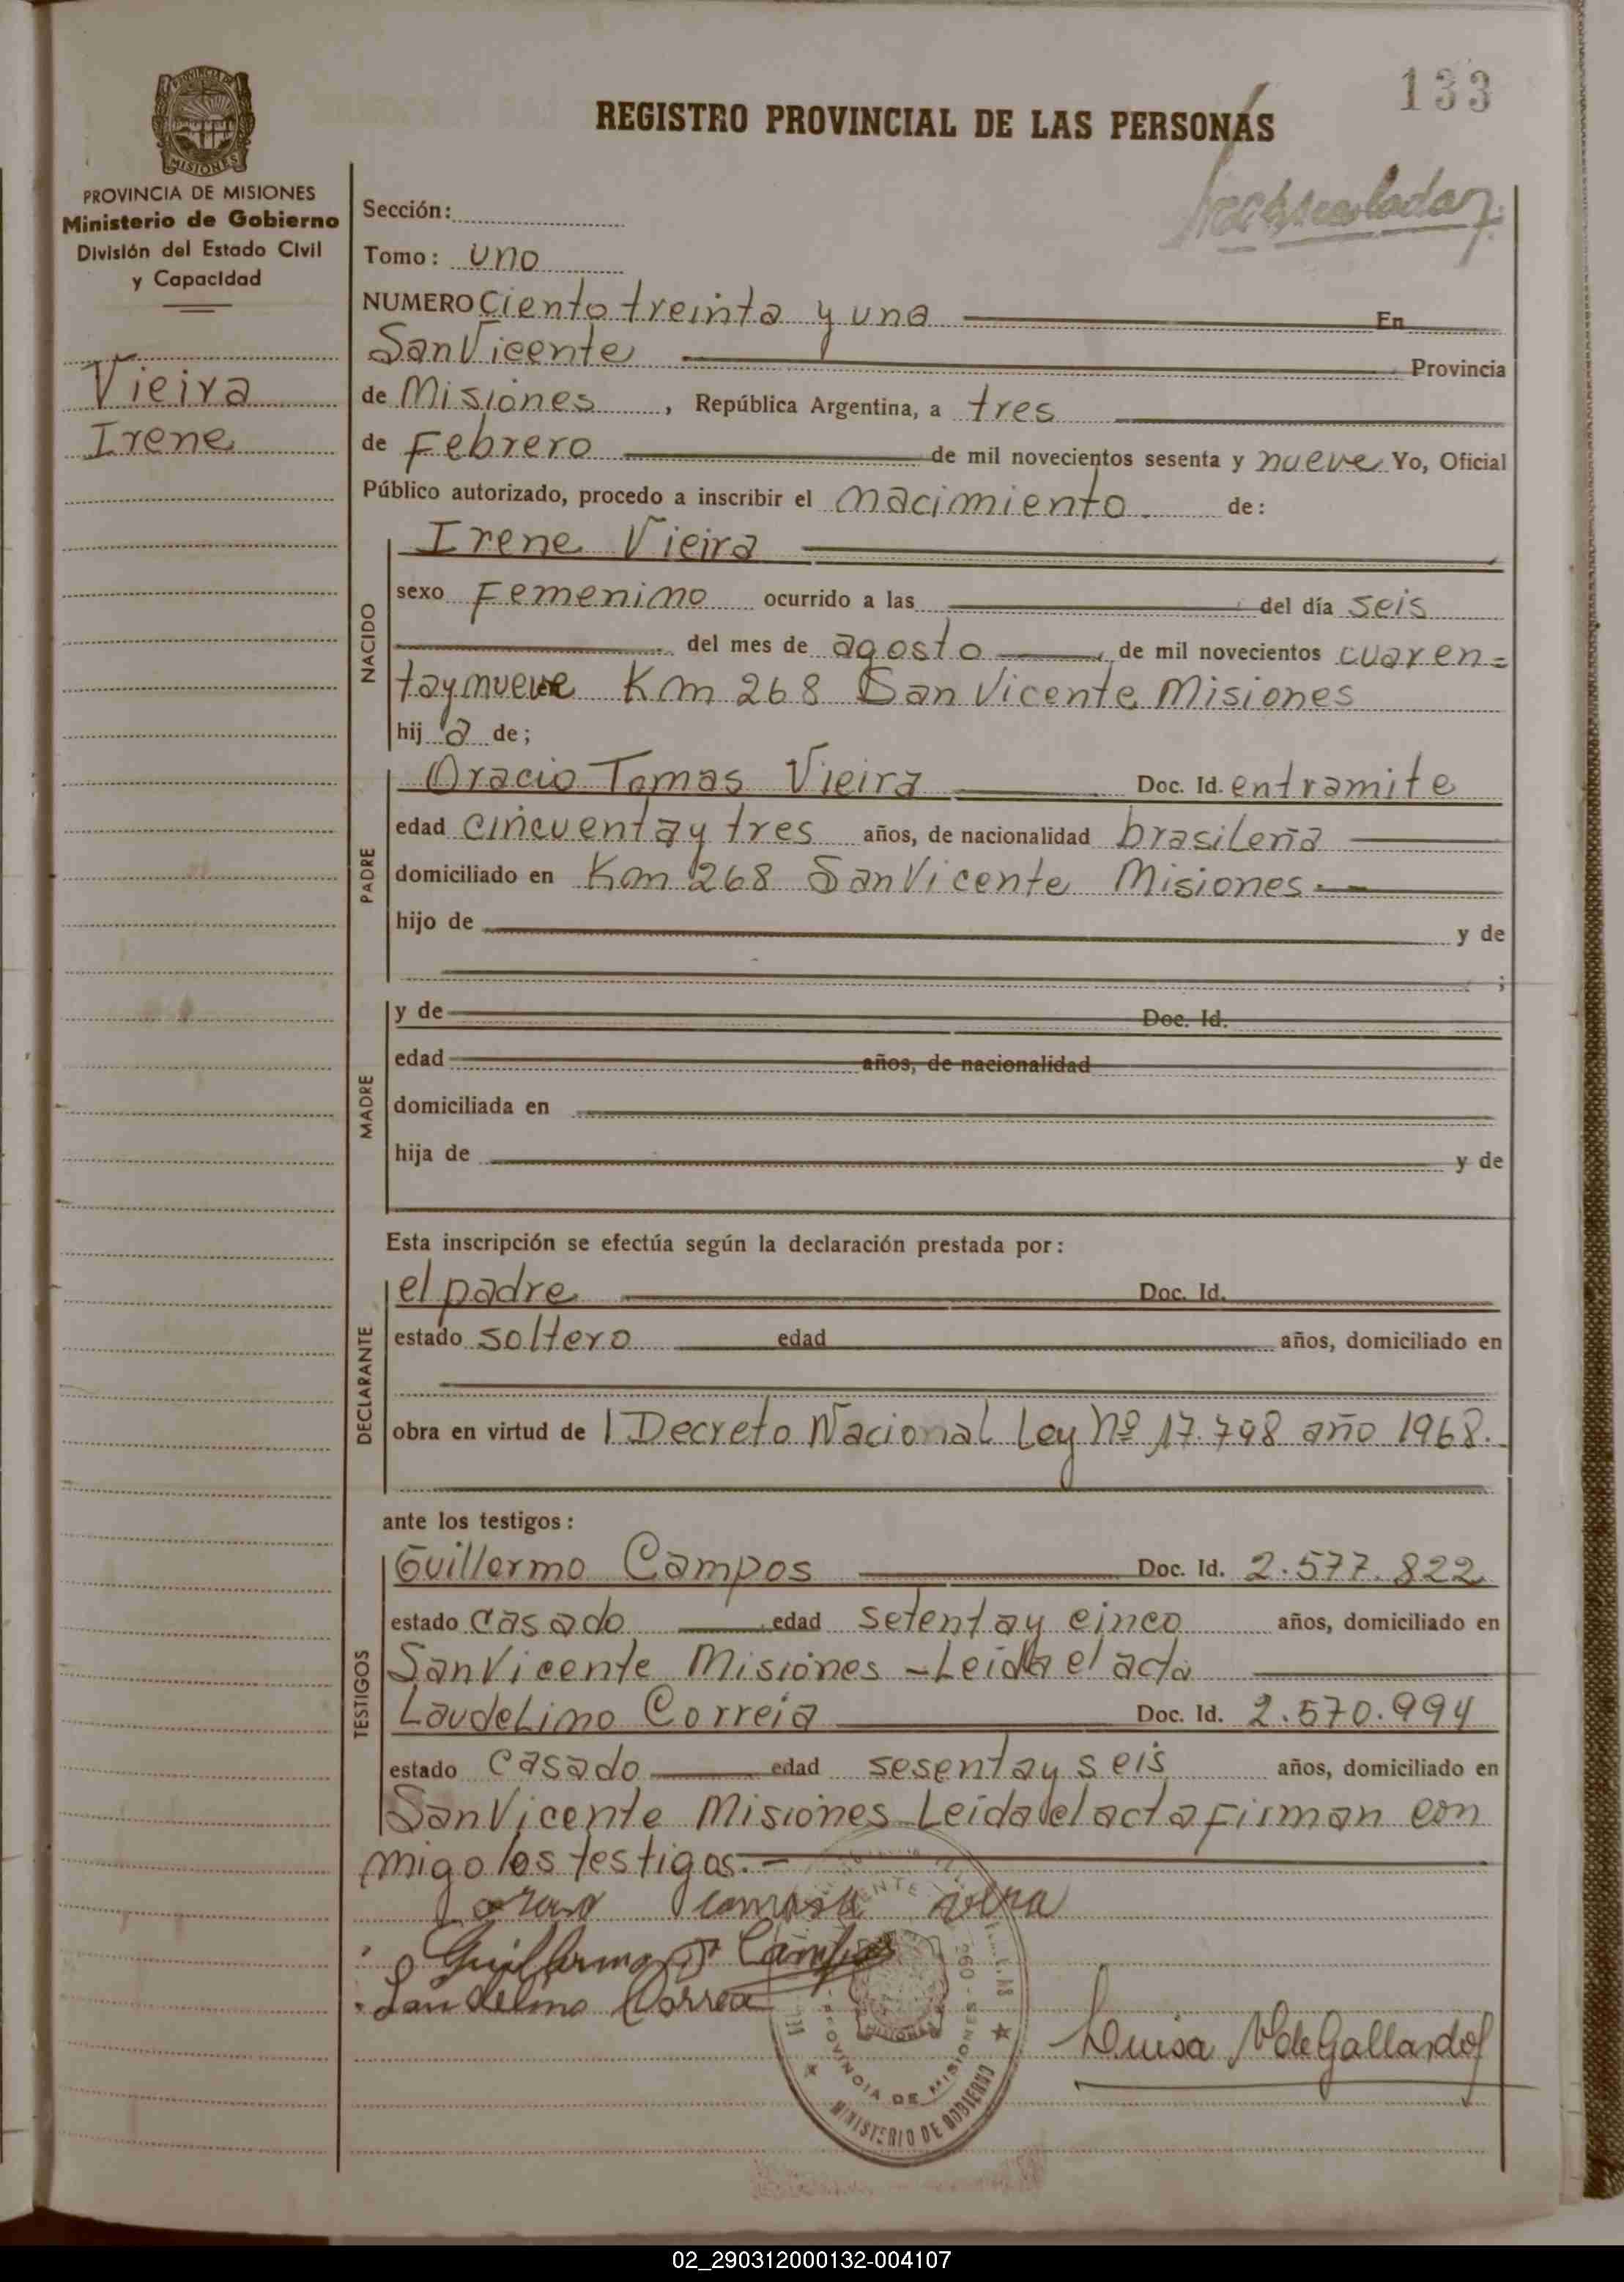 133
REGISTRO PROVINCIAL DE LAS PERSONAS
PROVINCIA DE
MISIONES
PROVINCIA DE MISIONES
Ministerio de Gobierno
División del Estado Civil
y Capacidad
Vieira
Irene
Sección:
Tomo: uno
NUMERO Ciento treinta y una En
San Vicente Provincia
de Misiones, República Argentina, a tres
de Febrero de mil novecientos sesenta y nueve Yo, Oficial
Público autorizado, procedo a inscribir el nacimiento de:
NACIDO
Irene Vieira
sexo Femenino ocurrido a las del día seis
del mes de agosto, de mil novecientos cuaren=
taynueve Km 268 San Vicente Misiones
hija de;
PADRE
Oracio Tomas Vieira Doc. Id. entramite
edad cincuentay tres años, de nacionalidad brasileña
domiciliado en Km 268 San Vicente Misiones.
hijo de y de
;
MADRE
y de Doc. Id.
edad años, de nacionalidad
domiciliada en
hija de y de
Esta inscripción se efectúa según la declaración prestada por:
DECLARANTE
el padre Doc. Id.
estado soltero edad años, domiciliado en
obra en virtud de l Decreto Nacional Ley Nº 17.798 año 1968.
ante los testigos:
TESTIGOS
Guillermo Campos Doc. Id. 2.577.822
estado casado edad setentay cinco años, domiciliado en
San Vicente Misiones - Leida el acta
Laudelino Correia Doc. Id. 2.570.994
estado casado edad sesentay seis años, domiciliado en
San Vicente Misiones Leida el acta firman con
migo los testigos.-
Guillermo Campos
Laudelino Correa
Luisa V de Gallardo
PROVINCIA DE MISIONES
MINISTERIO DE GOBIERNO
02_290312000132-004107